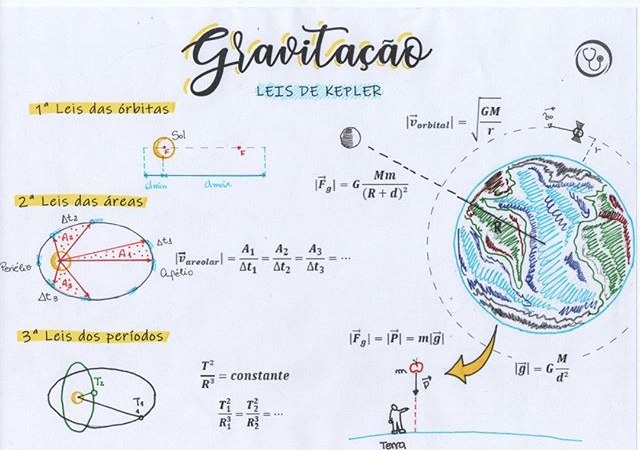 Gravitação
LEIS DE KEPLER
1ª Leis das órbitas
Sol
F
F
dmin
dmáx
2ª Leis das áreas
Δt2
A2
Δt1
A1
Periélio
Afélio
A3
Δt3
|v⃗areolar| = A1/Δt1 = A2/Δt2 = A3/Δt3 = ⋯
3ª Leis dos períodos
T2
T1
T²/R³ = constante
T1²/R1³ = T2²/R2³ = ⋯
|v⃗orbital| = √(GM/r)
r
|F⃗g| = G Mm/(R + d)²
R
|F⃗g| = |P⃗| = m|g⃗|
m
P⃗
Terra
|g⃗| = G M/d²